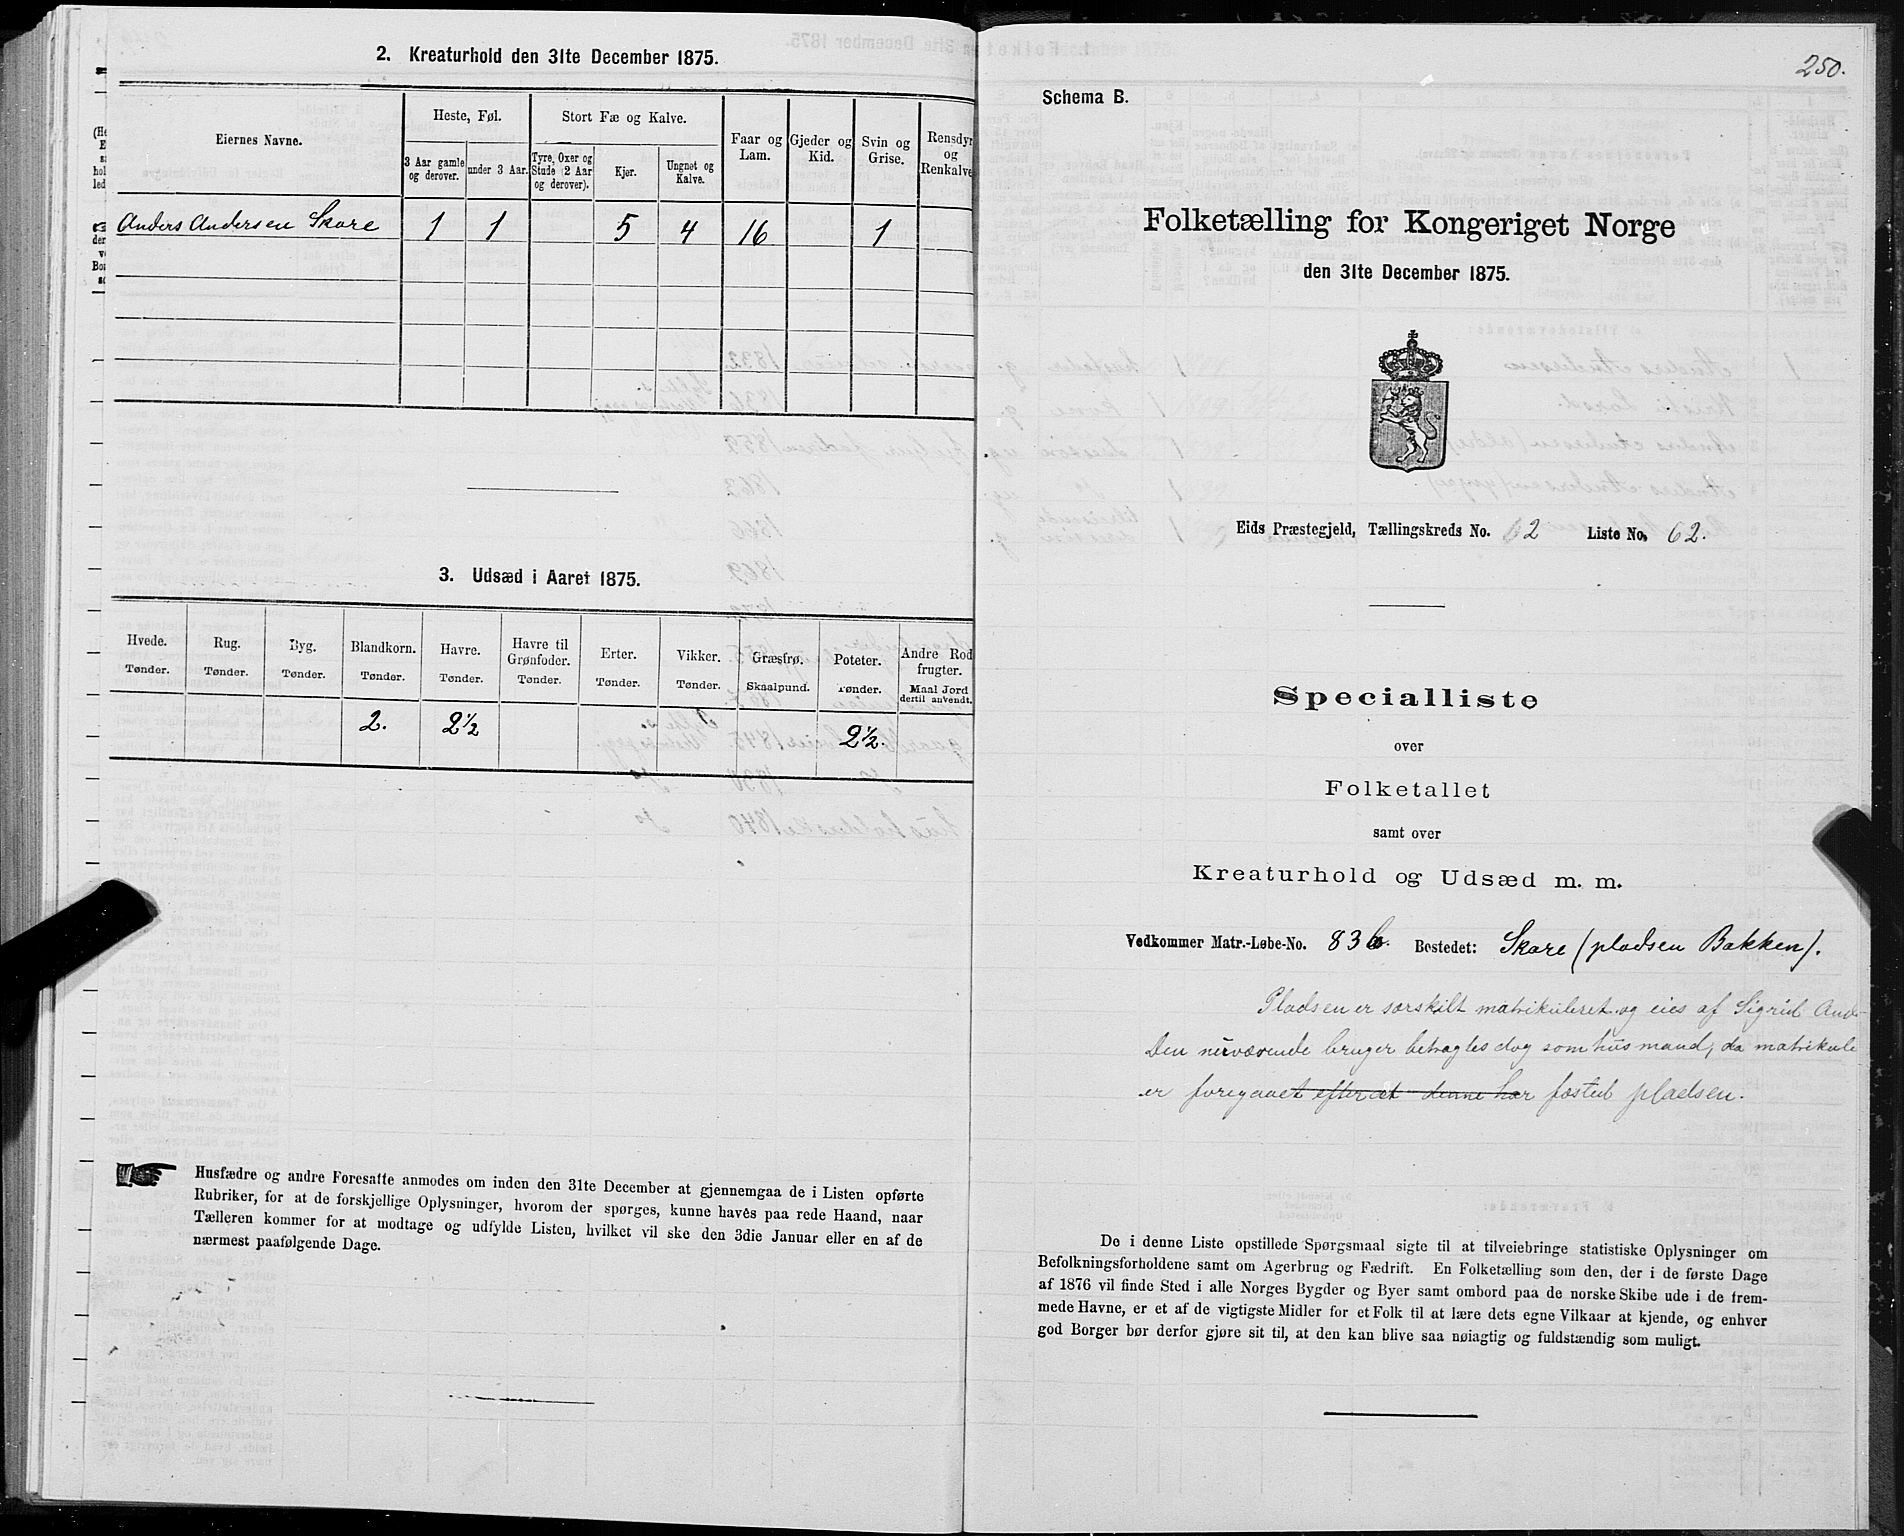 2. Kreaturhold den 31te December 1875.
Eiernes Navne.
Heste, Føl.
Stort Fæ og Kalve.
Faar og Lam.
Gjeder og Kid.
Svin og Grise.
Rensdyr og Renkalve
3 Aar gamle og derover.
under 3 Aar.
Tyre, Oxer og Stude (2 Aar og derover).
Kjør.
Ungnøt og Kalve.
Anders Andersen Skare 1 1 5 4 16 1
3. Udsæd i Aaret 1875.
Hvede. Rug. Byg. Blandkorn. Havre. Havre til Grønfoder. Erter. Vikker. Græsfrø. Poteter. Andre Rod frugter.
Tønder. Tønder. Tønder. Tønder. Tønder. Tønder. Tønder. Tønder. Skaalpund. Tønder. Maal Jord dertil anvendt.
2. 2½ 2½.
Husfædre og andre Foresatte anmodes om inden den 31te December at gjennemgaa de i Listen opførte
Rubriker, for at de forskjellige Oplysninger, hvorom der spørges, kunne haves paa rede Haand, naar
Tælleren kommer for at modtage og udfylde Listen, hvilket vil ske den 3die Januar eller en af de
nærmest paafølgende Dage.
250.
Schema B.
Folketælling for Kongeriget Norge
den 31te December 1875.
Eids Præstegjeld, Tællingskreds No. 2 Liste No. 62.
Specialliste
over
Folketallet
samt over
Kreaturhold og Udsæd m. m.
Vedkommer Matr.-Løbe-No. 83 b. Bostedet: Skare (pladsen Bakken).
Pladsen er særskilt matrikuleret og eies af Sigrid And-
Den nuværende bruger betragtes dog som husmand, da matrikule
er foregaaet efter at denne har fæsted pladsen.
De i denne Liste opstillede Spørgsmaal sigte til at tilveiebringe statistiske Oplysninger om
Befolkningsforholdene samt om Agerbrug og Fædrift. En Folketælling som den, der i de første Dage
af 1876 vil finde Sted i alle Norges Bygder og Byer samt ombord paa de norske Skibe ude i de frem-
mede Havne, er et af de vigtigste Midler for et Folk til at lære dets egne Vilkaar at kjende, og enhver
god Borger bør derfor gjøre sit til, at den kan blive saa nøiagtig og fuldstændig som muligt.